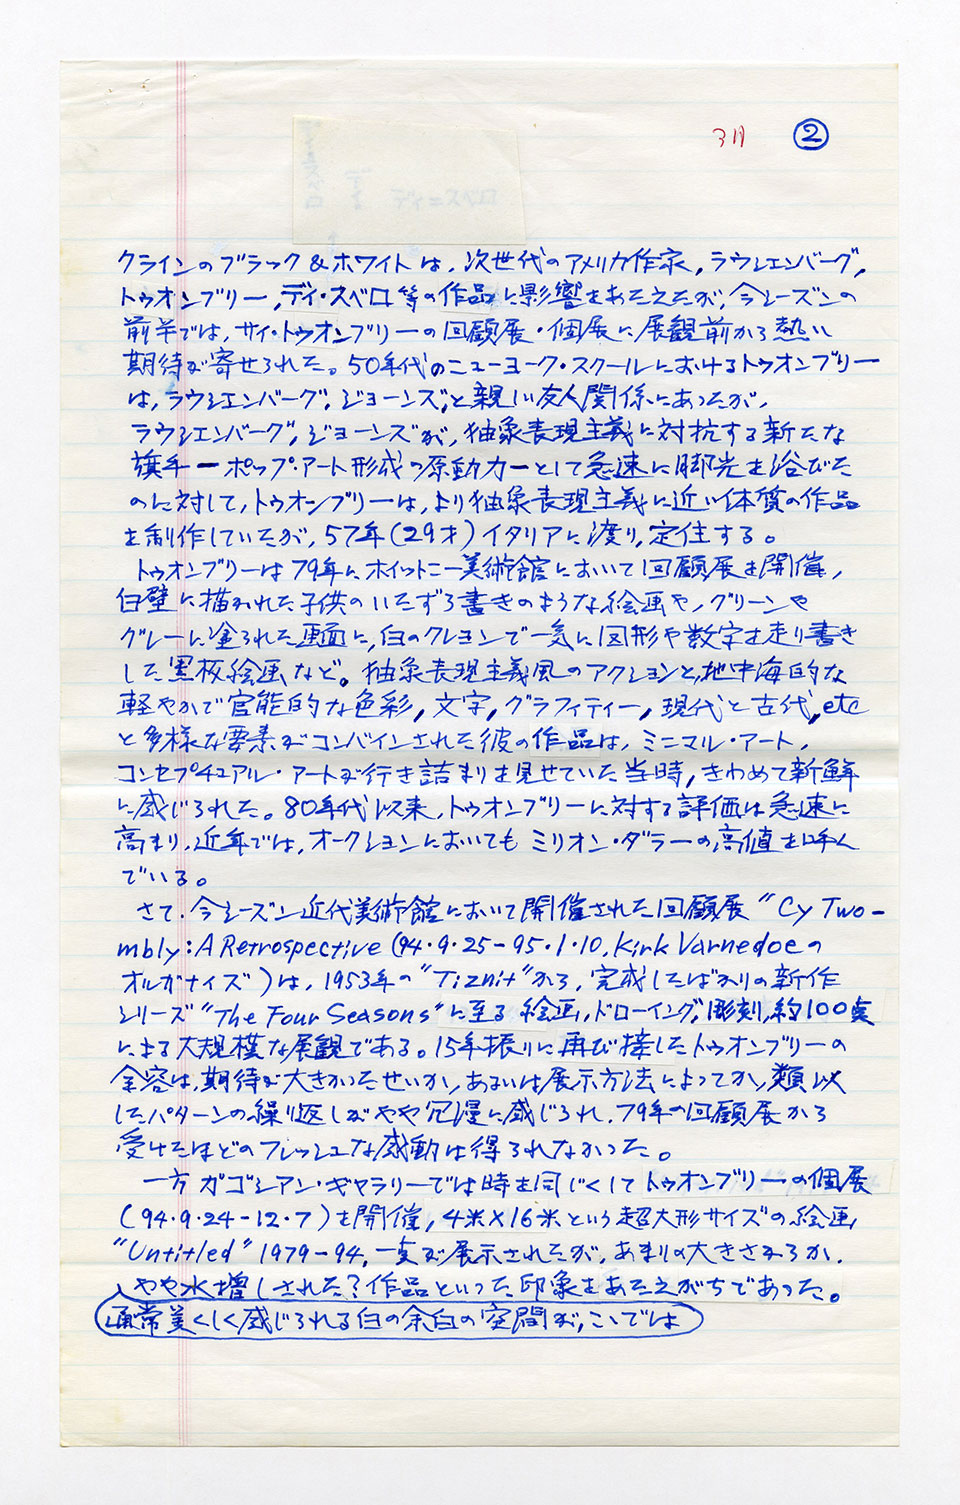 3月 ②
クラインのブラック&ホワイトは,次世代のアメリカ作家,ラウシェンバーグ,
トゥオンブリー,ディ・スベロ等の作品に影響をあたえたが,今シーズンの
前半では,サイ・トゥオンブリーの回顧展・個展に展観前から熱い
期待が寄せられた。50年代のニューヨーク・スクールにおけるトゥオンブリー
は,ラウシェンバーグ,ジョーンズ,と親しい友人関係にあったが,
ラウシェンバーグ,ジョーンズが,抽象表現主義に対抗する新たな
旗手ーポップ・アート形成の原動力ーとして急速に脚光を浴びた
のに対して,トゥオンブリーは,より抽象表現主義に近い体質の作品
を制作していたが,57年(29才)イタリアに渡り,定住する。
トゥオンブリーは79年にホイットニー美術館において回顧展を開催,
白壁に描かれた子供のいたずら書きのような絵画や,グリーンや
グレーに塗られた画面に,白のクレヨンで一気に図形や数字を走り書き
した黒板絵画など。抽象表現主義風のアクションと,地中海的な
軽やかで官能的な色彩,文字,グラフィティー,現代と古代,etc
と多様な要素がコンバインされた彼の作品は,ミニマル・アート,
コンセプチュアル・アートが行き詰まりを見せていた当時,きわめて新鮮
に感じられた。80年代以来,トゥオンブリーに対する評価は急速に
高まり,近年では,オークションにおいてもミリオン・ダラーの高値を呼ん
でいる。
さて,今シーズン近代美術館において開催された回顧展"Cy Two-
mbly:A Retrospective(94.9.25-95.1.10,Kirk Varnedoeの
オルガナイズ)は,1953年の"Tiznit"から,完成したばかりの新作
シリーズ"The Four Seasons"に至る絵画,ドローイング,彫刻,約100点
による大規模な展観である。15年振りに再び接したトゥオンブリーの
全容は,期待が大きかったせいか,あるいは展示方法によってか,類似
したパターンの繰り返しがやや冗漫に感じられ,79年の回顧展から
受けたほどのフレッシュな感動は得られなかった。
一方ガゴシアン・ギャラリーでは時を同じくしてトゥオンブリーの個展
(94.9.24-12.7)を開催,4米×16米という超大形サイズの絵画,
"Untitled"1979-94,一点が展示されたが,あまりの大きさからか,
やや水増しされた?作品といった印象をあたえがちであった。
通常美しく感じられる白の余白の空間が,ここでは